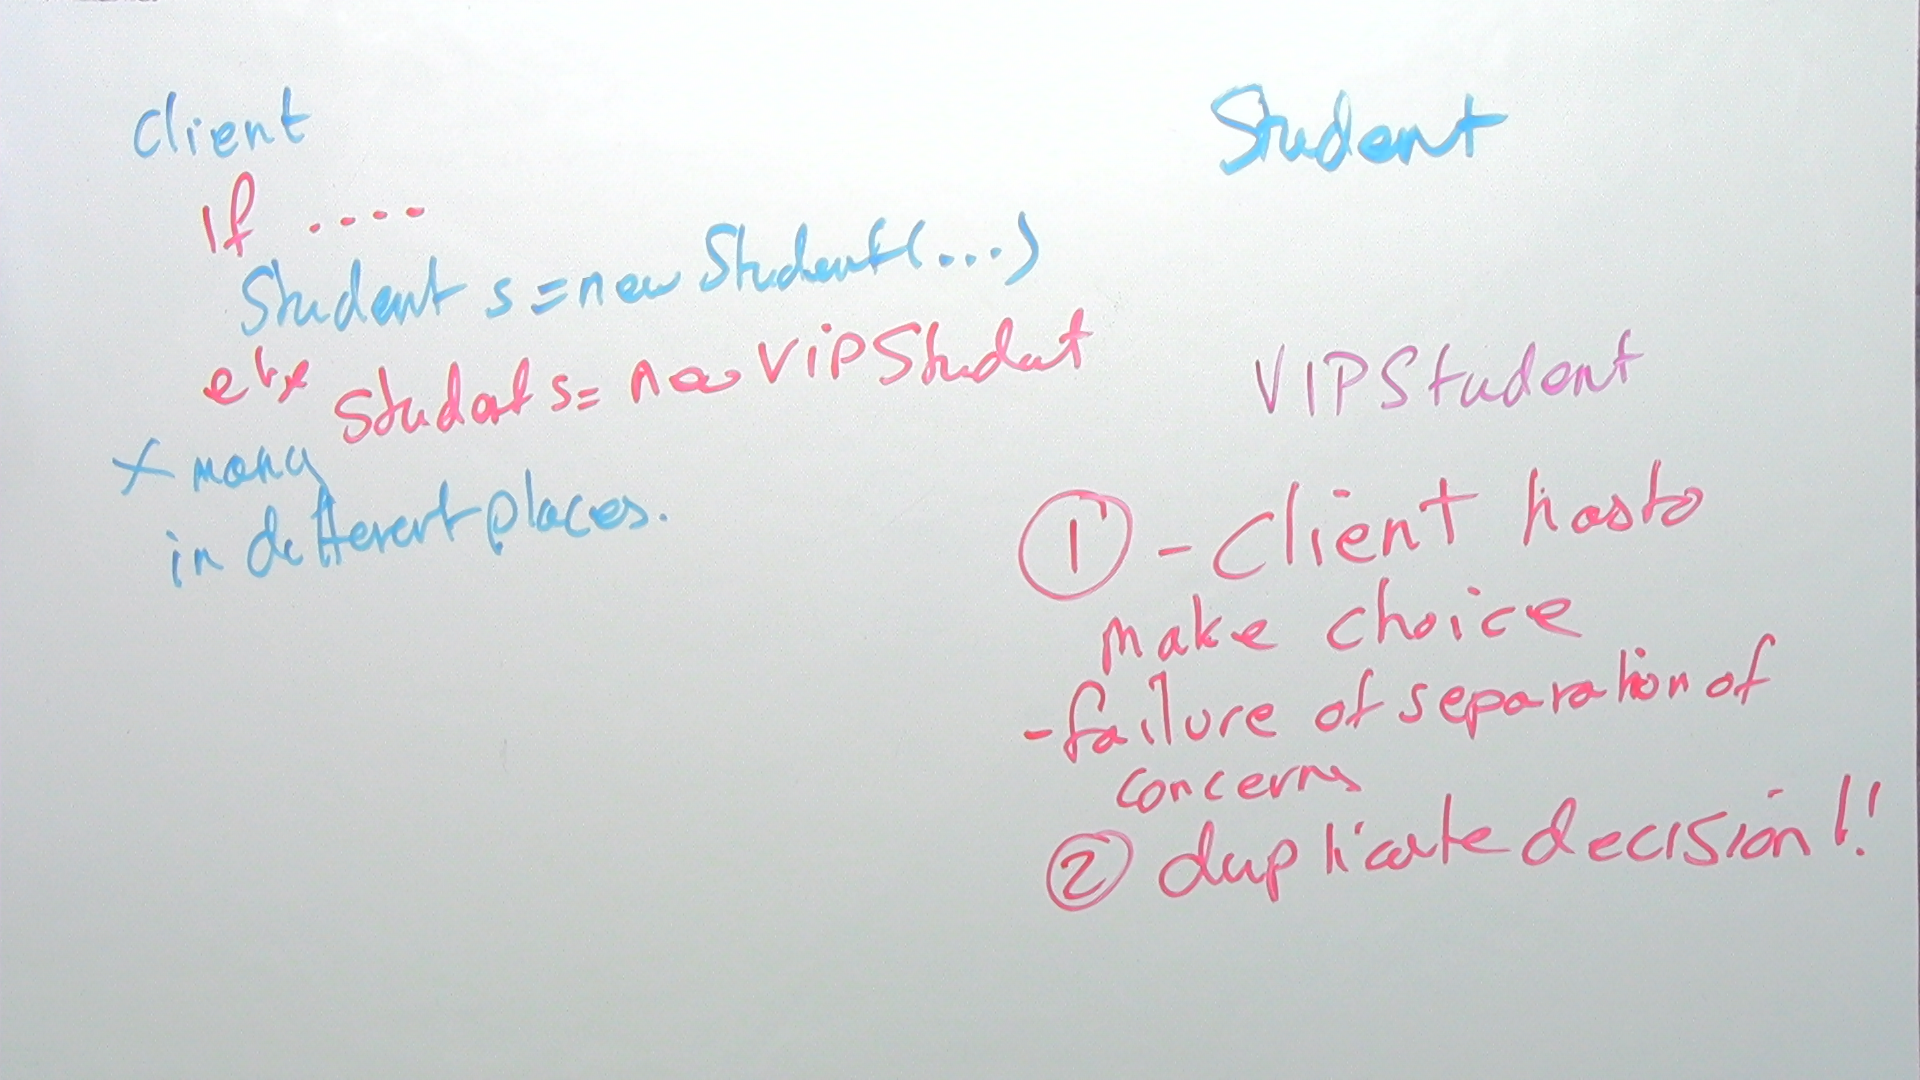 Client
If ....
Student s = new Student(...)
else Student s = new VIPStudent
X many
in different places.
Student
VIPStudent
① - Client has to
make choice
- failure of separation of
concerns
② duplicate decision!!